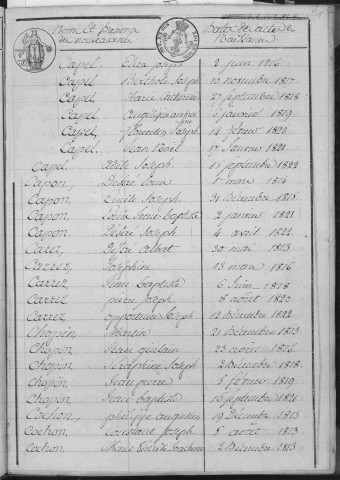 Noms et prénoms des nouveaux nés Dates des actes de Naissance
Capel, Eliza joseph 2 juin 1816
Capel Barthole Joseph 10 novembre 1817
Capel Marie Catherine 27 septembre 1818
Capel 2 février 1819
Capel florentin Joseph 14 février 1820
Capel Jean Noël 17 janvier 1821
Capel Adèle Joseph 15 septembre 1822
Capon, Désiré Louis 8 mars 1814
Capon, Lucette Joseph 31 décembre 1815
Capon Louis Jean-baptiste 2 janvier 1821
Capon Désiré Joseph 4 avril 1822
Carez, Désiré Albert 30 mai 1813
Carrez, Joséphine 13 mars 1816
Carrez, Jean baptiste 6 Juin 1818
Carrez pierre Joseph 8 août 1820
Carrez, opportune Joseph 12 décembre 1822
Chopin, Martin 21 Décembre 1813
Chopin Jean ghislain 23 août 1816
Chopin, Séraphine Joseph 2 Décembre 1818
Chopin Jean pierre 5 février 1819
Chopin Jean baptiste 16 septembre 1821
Cochon, philippe augustin 19 Décembre 1813
Cochon, Constant Joseph 5 août 1813
Cochon Marie 2 Décembre 1813